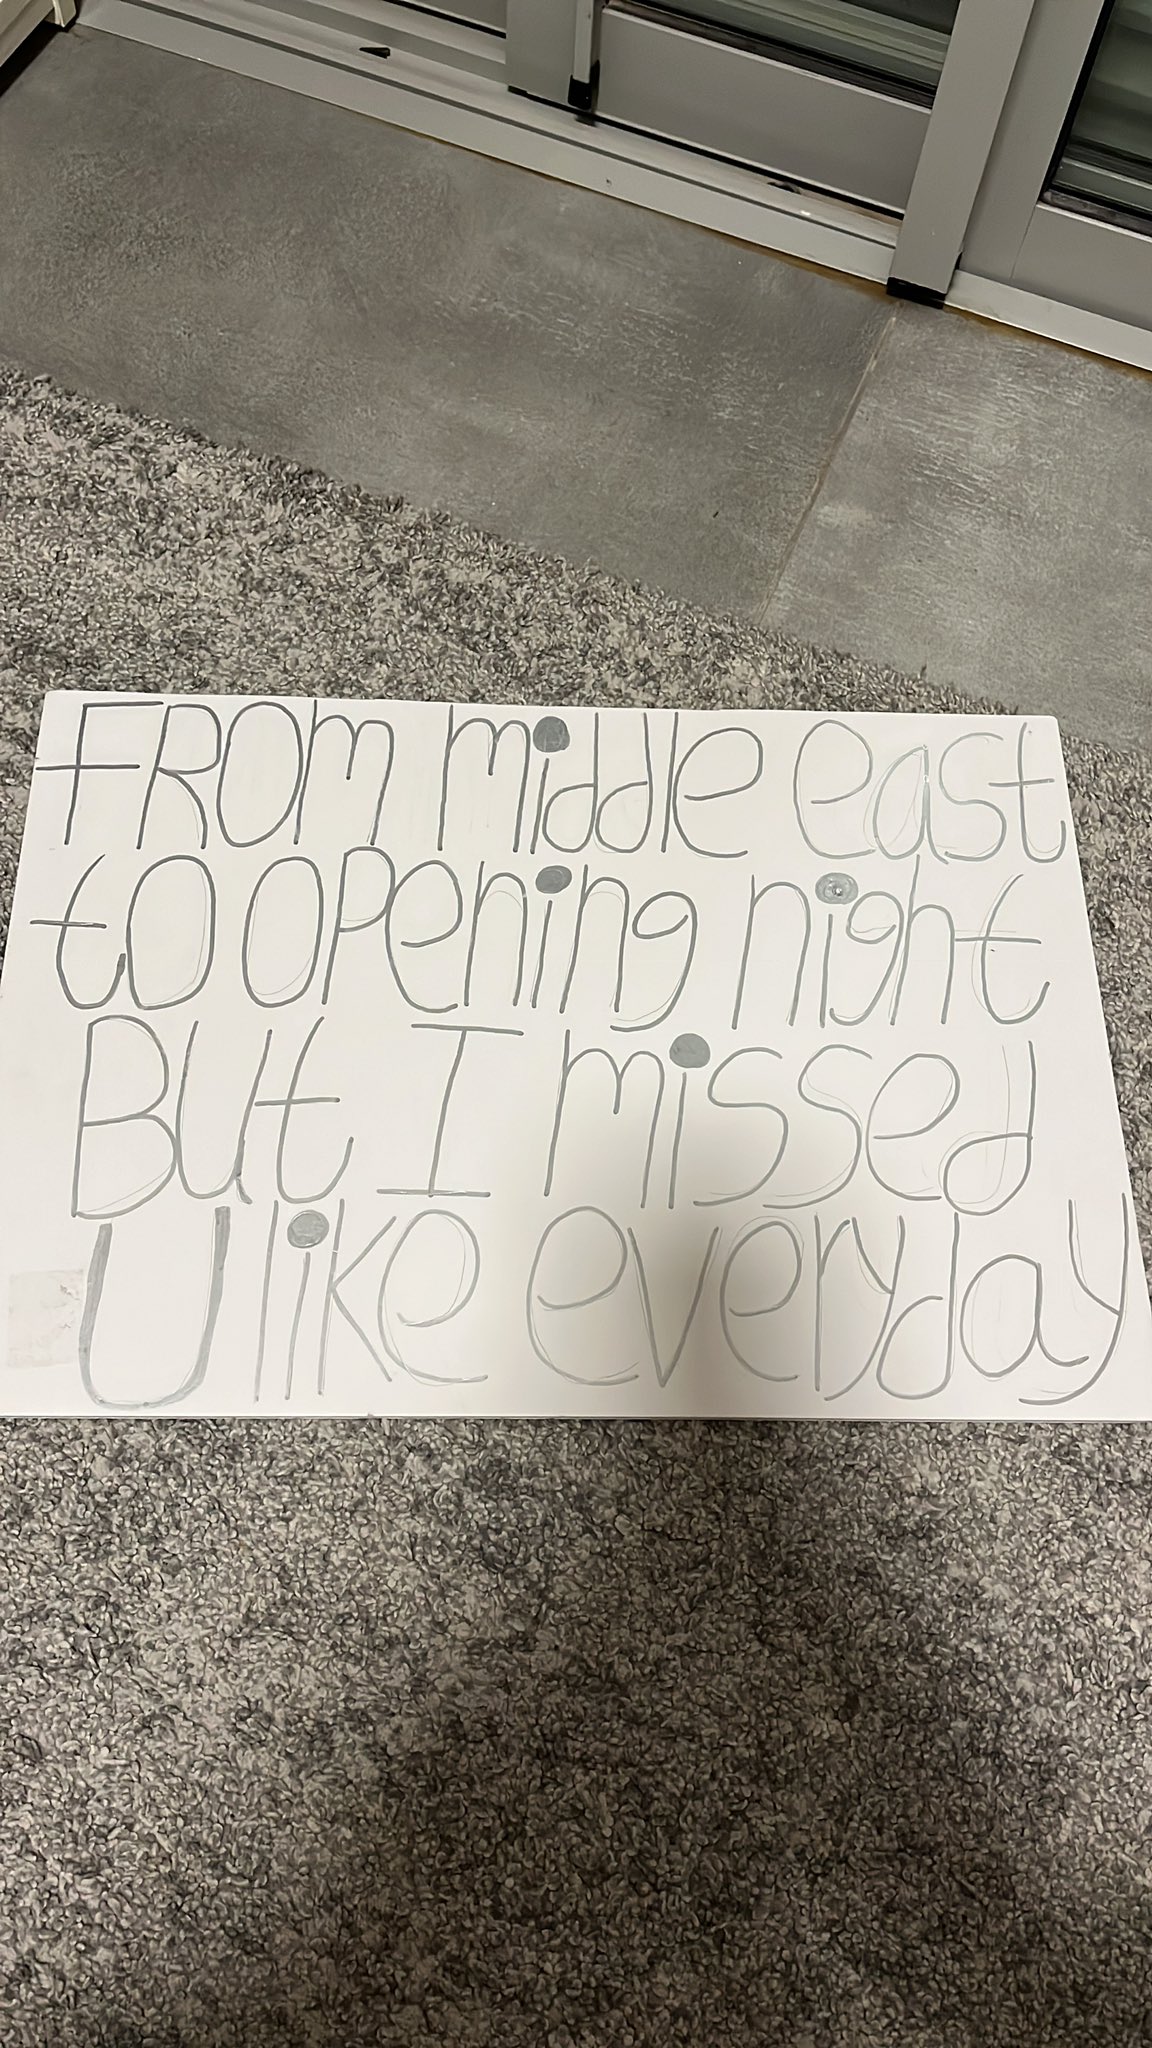 FROM middle east
to opening night
But I missed
U like everyday